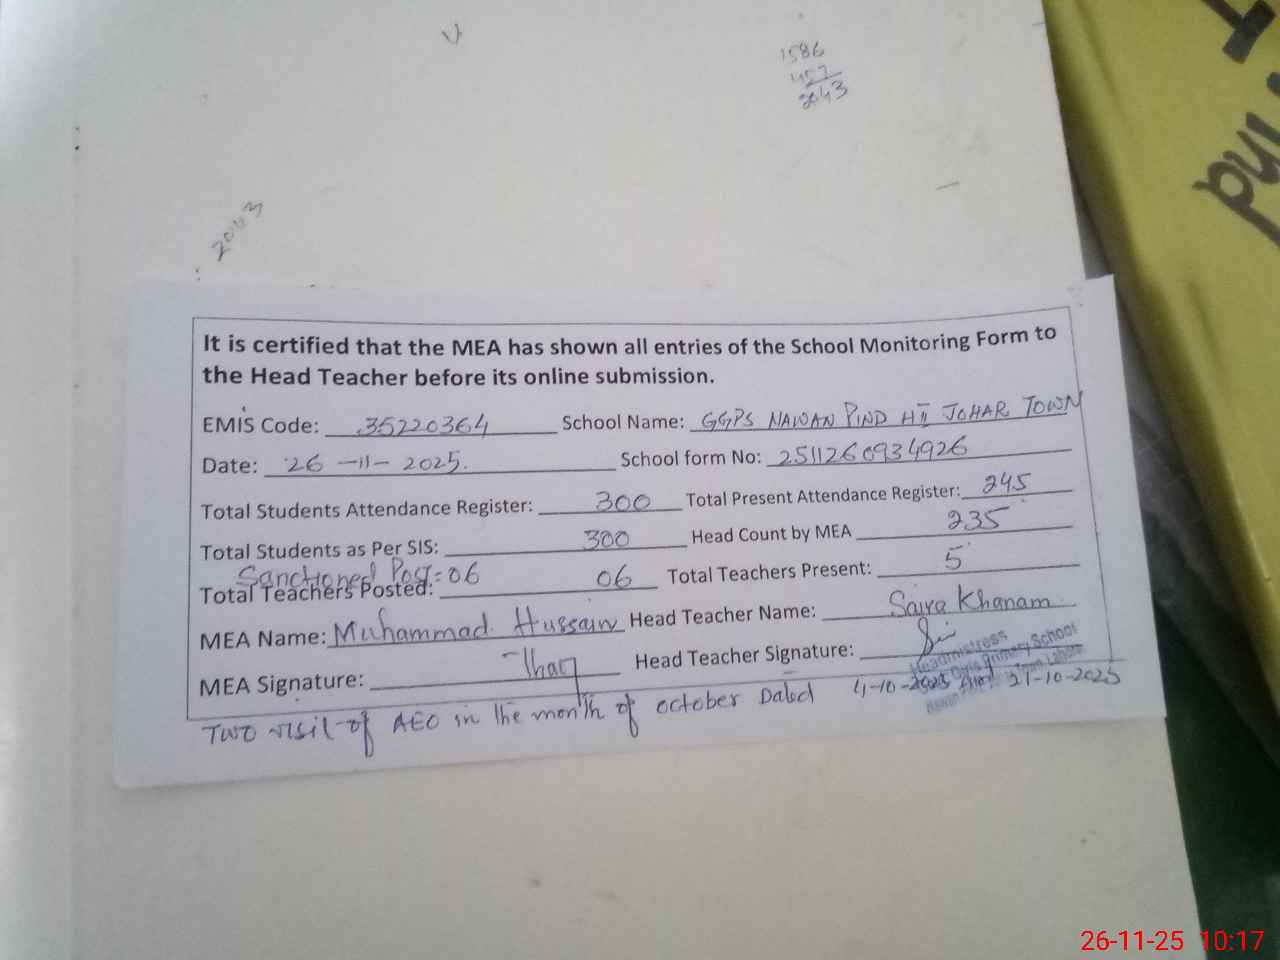 1586
457
2043
2043
It is certified that the MEA has shown all entries of the School Monitoring Form to
the Head Teacher before its online submission.
EMIS Code: 35220364 School Name: GGPS NAWAN PIND HII JOHAR TOWN
Date: 26-11-2025. School form No: 2511260934926
Total Students Attendance Register: 300 Total Present Attendance Register: 245
Total Students as Per SIS: 300 Head Count by MEA 235
Sanctioned Post=06
Total Teachers Posted: 06 Total Teachers Present: 5
MEA Name: Muhammad Hussain Head Teacher Name: Saira Khanam
MEA Signature: Head Teacher Signature:
Headmistress
Girls Primary School
Town Lahore
Two visit of AEO in the month of october Dated 4-10-2025 And 21-10-2025
26-11-25 10:17